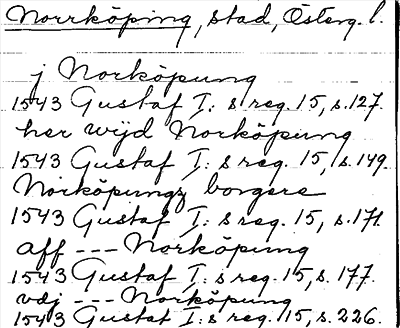 Norrköping, stad, Österg. l.
j Norköpung
1543 Gustaf I: s reg. 15, s. 127.
her wijd Norköpung
1543 Gustaf I: s reg. 15, s. 149.
Norköpungz borgere
1543 Gustaf I: s reg. 15, s. 171.
aff --- Norköpung
1543 Gustaf I: s reg. 15, s. 177.
vdj --- Norköpung
1543 Gustaf I: s reg. 15, s. 226.